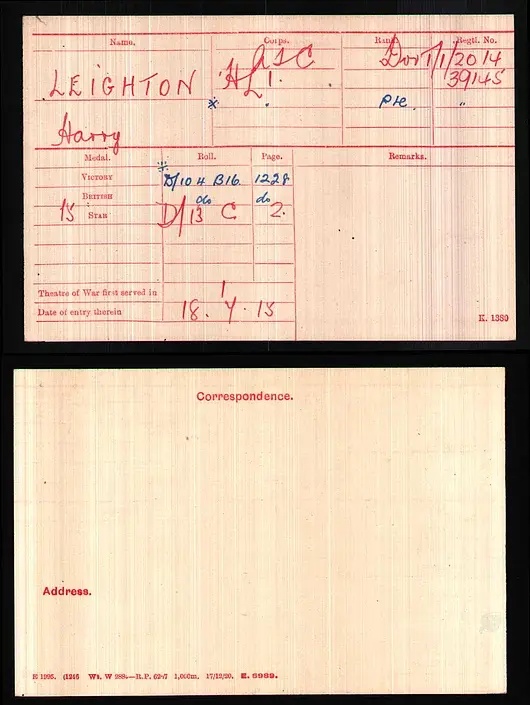 Name. Corps. Rank. Regtl. No.
ASC Dvr T/1/2014
LEIGHTON H.L.I. 39145
* " Pte "
Harry
Medal. Roll. Page. Remarks.
VICTORY D/104 B16. 1228
BRITISH do do
15 STAR D/13 C 2.
Theatre of War first served in 1
Date of entry therein 18.7.15
K. 1380
Correspondence.
Address.
E 1995. (1246 Wt. W 288.—R.P. 62/7 1,000m. 17/12/20. E. 5989.